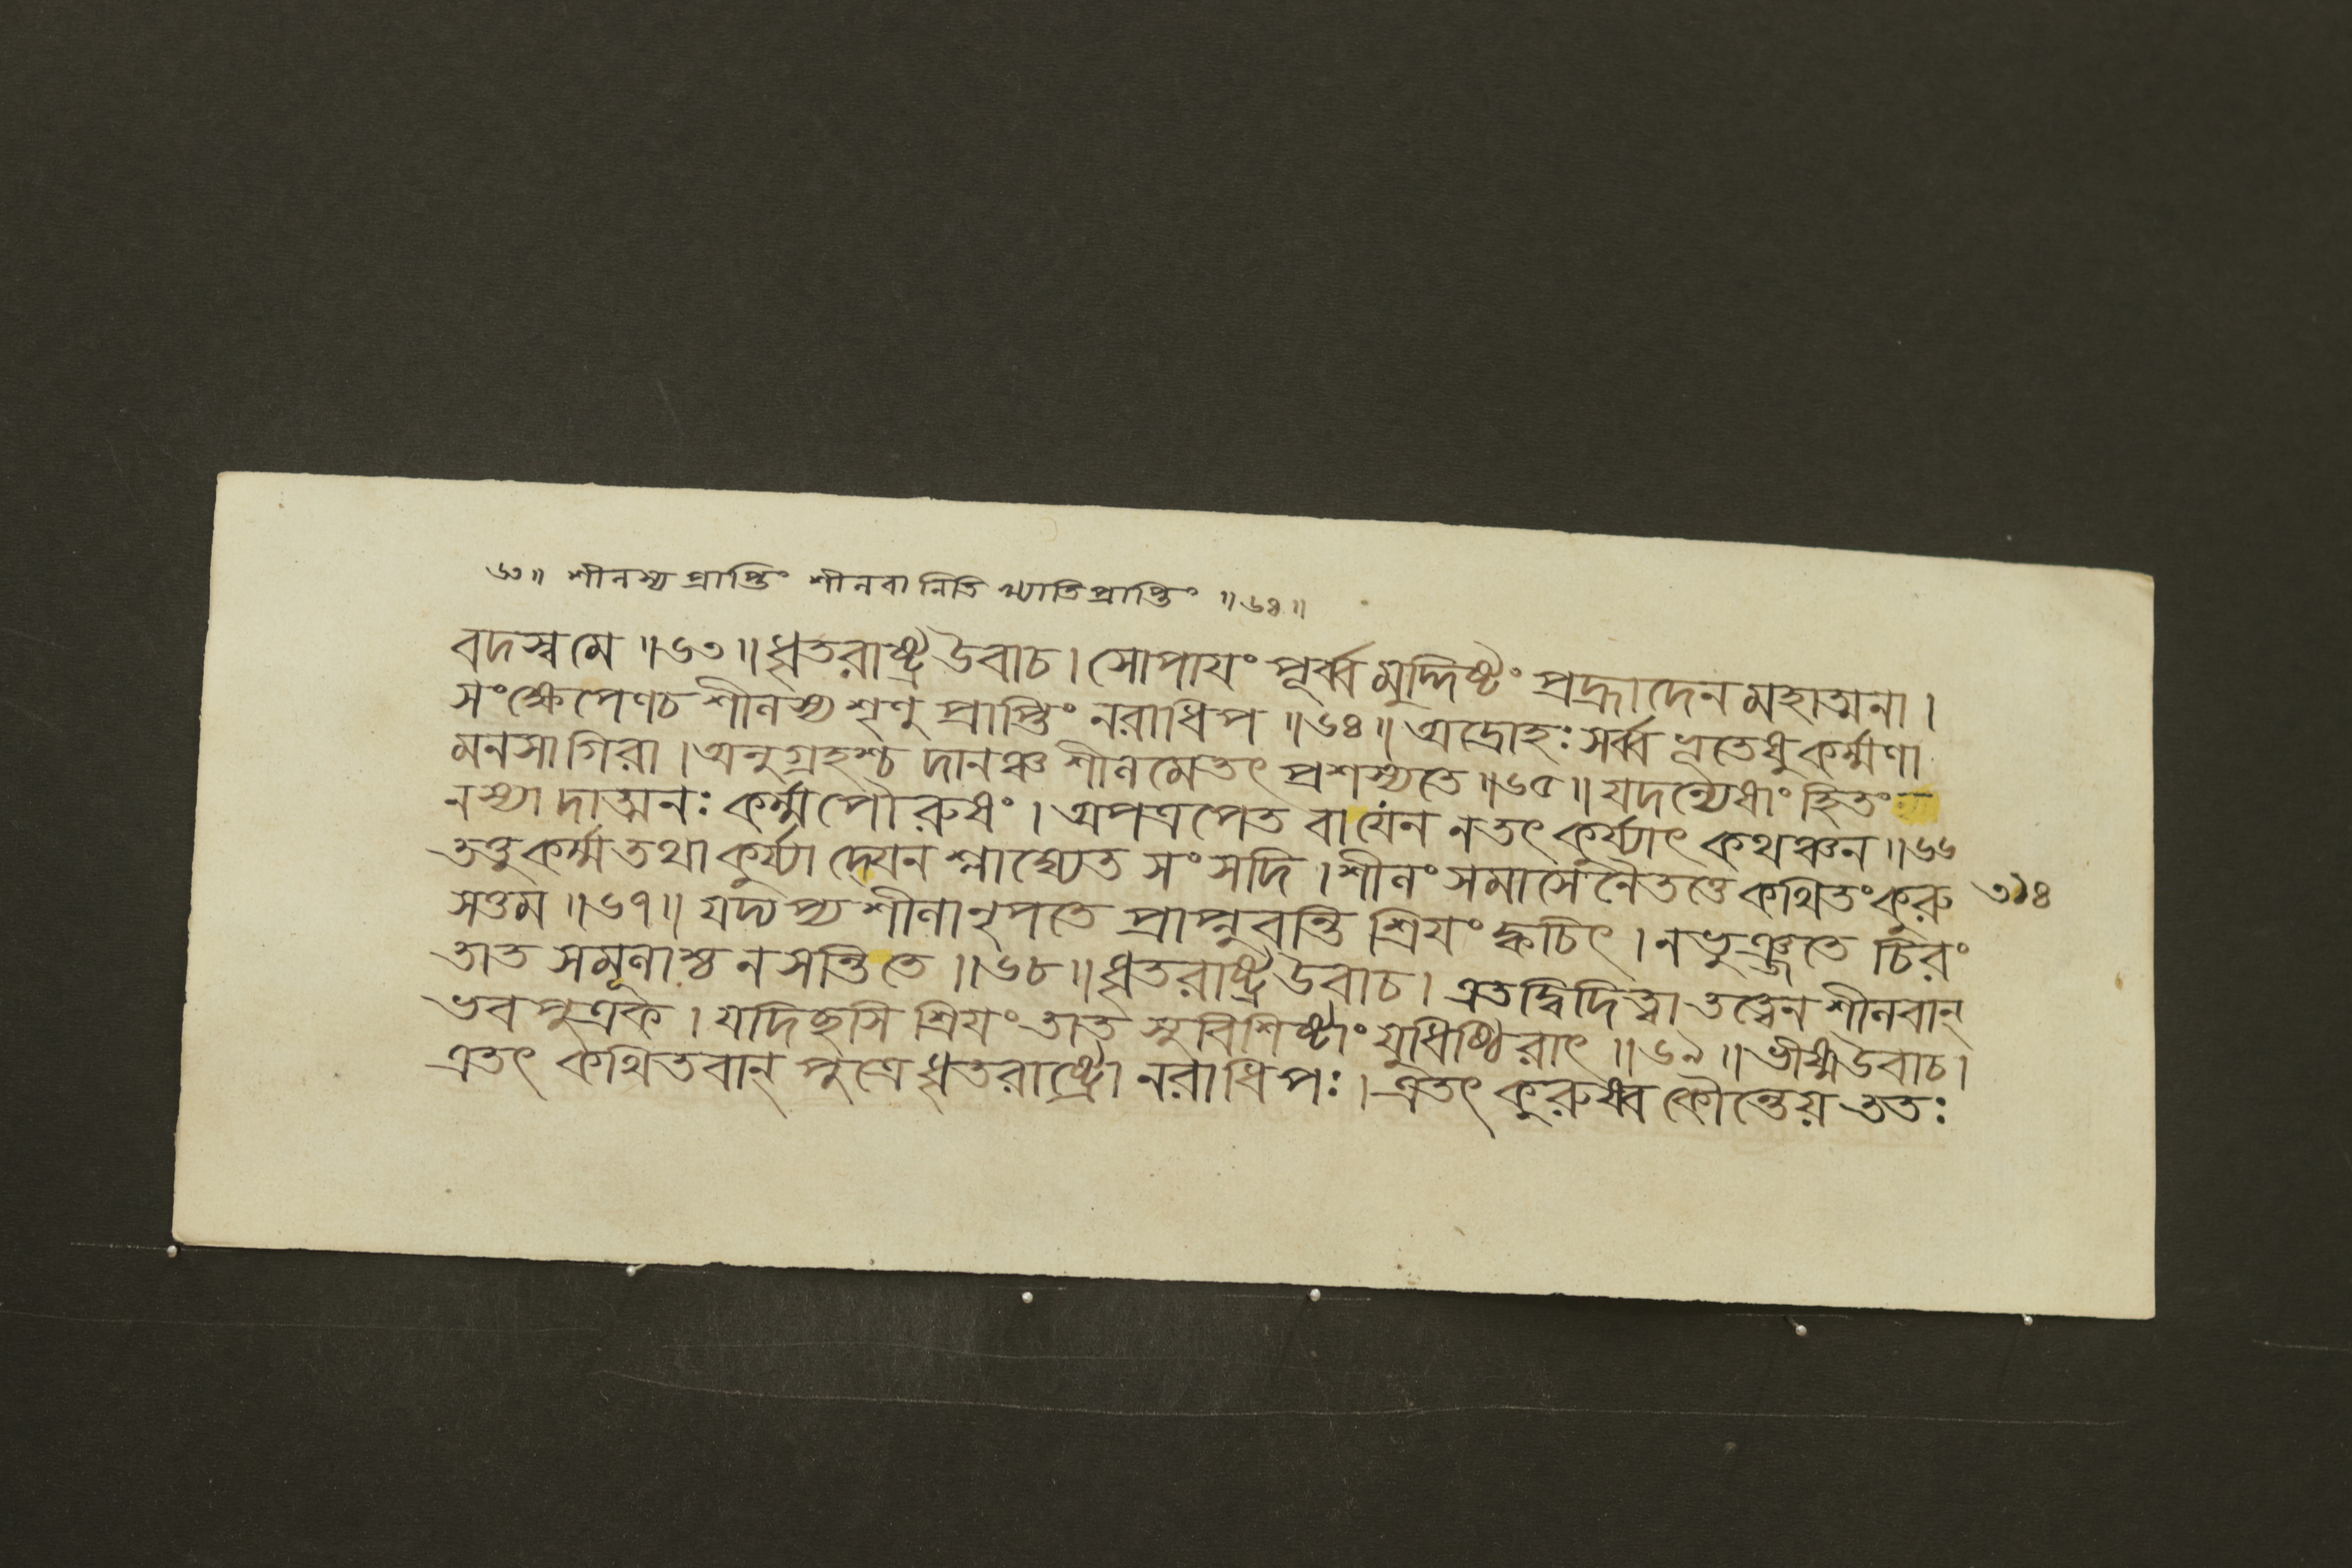 ৬৩॥ শীলস্য প্রাপ্তিং শীলবানিতি খ্যাতিপ্রাপ্তিং ॥৬৪॥
বদস্ব মে ॥৬৩॥ ধৃতরাষ্ট্র উবাচ। সোপাযং পূর্ব্বমুদ্দিষ্টং প্রহ্লাদেন মহাত্মনা।
সংক্ষেপেণ চ শীলস্য শৃণু প্রাপ্তিং নরাধিপ ॥৬৪॥ অদ্রোহঃ সর্ব্বভূতেষু কর্ম্মণা
মনসা গিরা। অনুগ্রহশ্চ দানঞ্চ শীলমেতৎ প্রশস্যতে ॥৬৫॥ যদন্যেষাং হিতং
ন স্যাদাত্মনঃ কর্ম্ম পৌরুষং। অপত্রপেত বা যেন ন তৎ কুর্য্যাৎ কথঞ্চন ॥৬৬
তত্তু কর্ম্ম তথা কুর্য্যাদ্যেন শ্লাঘ্যেত সংসদি। শীলং সমাসেনৈতত্তে কথিতং কুরু
৩১৪
সত্তম ॥৬৭॥ যদ্যপ্যশীলা নৃপতে প্রাপ্নুবন্তি শ্রিযং ক্বচিৎ। ন ভুঞ্জতে চিরং
তাত সমূলাশ্চ ন সন্তি তে ॥৬৮॥ ধৃতরাষ্ট্র উবাচ। এতদ্বিদিত্বা তত্ত্বেন শীলবান্
ভব পুত্রক। যদিছসি শ্রিযং তাত সুবিশিষ্টাং যুধিষ্ঠিরাৎ ॥৬৯॥ ভীষ্ম উবাচ।
এতৎ কথিতবান্ পুত্রে ধৃতরাষ্ট্রো নরাধিপঃ। এতৎ কুরুষ্ব কৌন্তেয় ততঃ